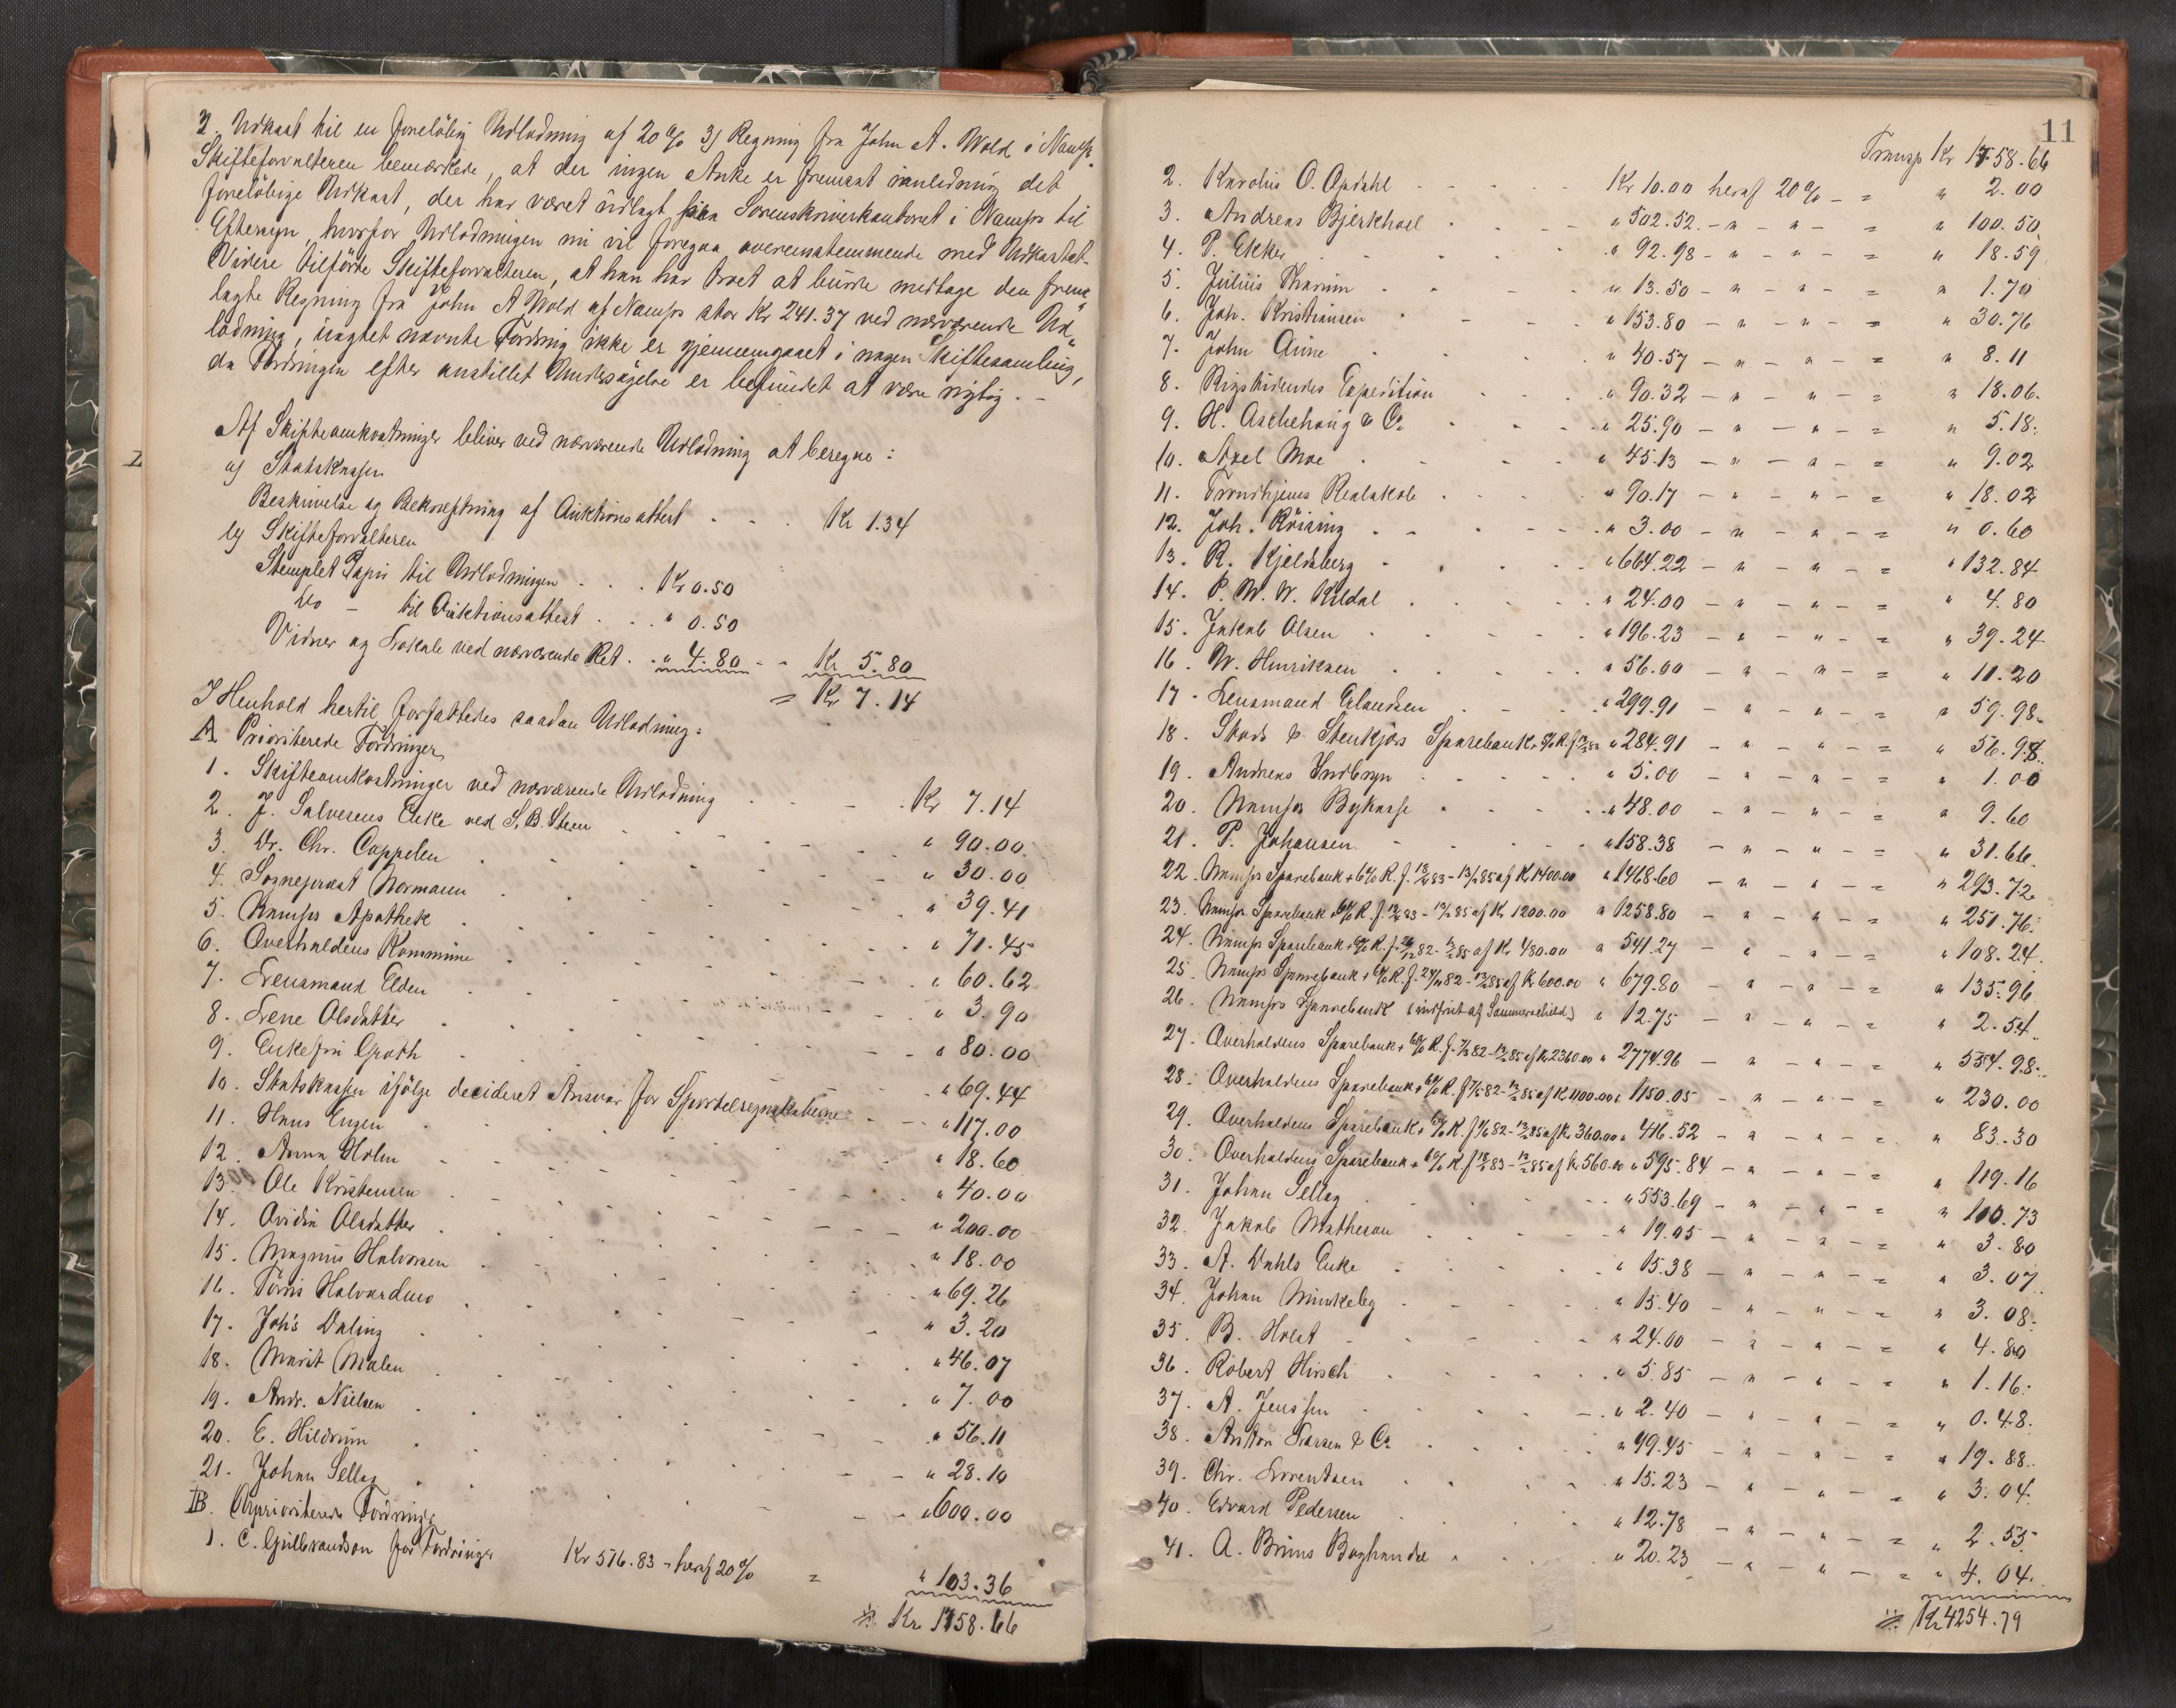 2. Udkast til en foreløbig Udlodning af 20 % 3) Regning fra John A. Wold i Nams.
Skifteforvalteren bemærkede, at der ingen Anke er fremsat i anledning det
foreløbige Udkast, der har været udlagt paa Sorenskriverkontoret i Namsos til
Eftersyn, hvorfor Udlodningen nu vil foregaa overensstemmende med Udkastet.
Videre tilførte Skifteforvalteren, at han har troet at burde medtage den frem-
lagte Regning fra John A Wold af Namsos stor Kr 241.37 ved nærværende Ud-
lodning, uagtet nævnte Fordring ikke er gjennemgaaet i nogen Skiftesamling,
da Fordringen efter anstillet Undersøgelse er befundet at være rigtig. -
Af Skifteomkostninger bliver ved nærværende Udlodning at beregne:
a) Statskassen
Beskrivelse og Bekræftning af Auktionsattest . . . Kr 1.34
b) Skifteforvalteren
Stemplet Papir til Udlodningen . . . Kr 0.50
do - til Auktionsattest . . . " 0.50
Vidner og Lokale ved nærværende Ret . . " 4.80 - - Kr 5.80
= Kr 7.14
I Henhold hertil forfattedes saadan Udlodning:
A Prioriterede Fordringer
1. Skifteomkostninger ved nærværende Udlodning . . Kr 7.14
2. J. Salvesens Enke ved S. B. Steen " 90.00
3. Dr. Chr. Cappelen " 30.00
4. Sogneprest Normann " 39.41
5. Namsos Apothek " 71.45
6. Overhaldens Kommune " 60.62
7. Lensmand Elden " 3.90
8. Lene Olsdatter " 80.00
9. Enkefru Groth " 69.44
10. Statskassen ifølge decideret Ansvar for Sportelregnskaberne " 117.00
11. Hans Engen " 18.60
12. Anna Holm " 40.00
13. Ole Kristensen " 200.00
14. Ovidia Olsdatter " 18.00
15. Magnus Halvorsen " 69.26
16. Tørris Halvardmo " 3.20
17. Johs Duling " 46.07
18. Marit Malen " 7.00
19. Andr. Nielsen " 56.11
20. E. Hildrum " 28.10
21. Johan Sellæg " 600.00
B. Uprioriterede Fordringer
1. C. Gulbrandson for Fordringer Kr 516.83 - heraf 20 % = " 103.36
Kr. 1758.66
11
Transp Kr 1758.66
2. Karolius O. Opdahl Kr 10.00 heraf 20 % - = " 2.00
3. Andreas Bjerkhoel " 502.52 - " - " - = " 100.50
4. P. Ekker " 92.98 - " - " - = " 18.59
5. Julius Tharum " 13.50 - " - " - = " 1.70
6. Joh. Kristiansen " 153.80 - " - " - = " 30.76
7. John Aune " 40.57 - " - " - = " 8.11
8. Rigstidendes Expedition " 90.32 - " - " - = " 18.06.
9. H. Aschehoug & Co " 25.90 - " - " - = " 5.18.
10. Axel Moe " 45.13 - " - " - = " 9.02
11. Trondhjems Realskole " 90.17 - " - " - = " 18.02
12. Joh. Røising " 3.00 - " - " - = " 0.60
13. R. Kjeldsberg " 664.22 - " - " - = " 132.84
14. P. W. W. Kildal " 24.00 - " - " - = " 4.80
15. Jakob Olsen " 196.23 - " - " - = " 39.24
16. W. Henriksen " 56.00 - " - " - = " 11.20
17. Lensmand Erlandsen " 299.91 - " - " - = " 59.98
18. Stods & Stenkjærs Sparebank + " 284.91 - " - " - = " 56.98
19. Andreas Indbryn " 5.00 - " - " - = " 1.00
20. Namsos Bykasse " 48.00 - " - " - = " 9.60
21. P. Johansen " 158.38 - " - " - = " 31.66
22. Namsos Sparebank + 6 % R. f. - af Kr 1400.00 " 1468.60 - " - " - = " 293.72
23. Namsos Sparebank + 6 % R. f. - af Kr 1200.00 " 1258.80 - " - " - = " 251.76
24. Namsos Sparebank + 6 % R. f. - af Kr 480.00 " 541.27 - " - " - = " 108.24
25. Namsos Sparebank + 6 % R. f. - af Kr 600.00 " 679.80 - " - " - = " 135.96
26. Namsos Sparebank " 12.75 - " - " - = " 2.54
27. Overhaldens Sparebank + 6 % R. f. - af Kr 2360.00 " 2774.96 - " - " - = " 554.98
28. Overhaldens Sparebank + 6 % R. f. - af Kr " 1150.05 - " - " - = " 230.00
29. Overhaldens Sparebank + 6 % R. f. - af Kr 360.00 " 416.52 - " - " - = " 83.30
30. Overhaldens Sparebank + 6 % R. f. - af Kr 560.00 " 595.84 - " - " - = " 119.16
31. Johan Sellæg " 553.69 - " - " - = " 110.73
32. Jakob Matheson " 19.05 - " - " - = " 3.80
33. A. Dahls Enke " 15.38 - " - " - = " 3.07
34. Johan Minkeby " 15.40 - " - " - = " 3.08
35. B. Holst " 24.00 - " - " - = " 4.80
36. Robert Hirsch " 5.85 - " - " - = " 1.16
37. A. Jenssen " 2.40 - " - " - = " 0.48
38. Anton Larsen & Co " 99.45 - " - " - = " 19.88
39. Chr. Lorentsen " 15.23 - " - " - = " 3.04
40. Edvard Pedersen " 12.78 - " - " - = " 2.55
41. A. Bruns Boghandel " 20.23 - " - " - = " 4.04
Kr 4254.79